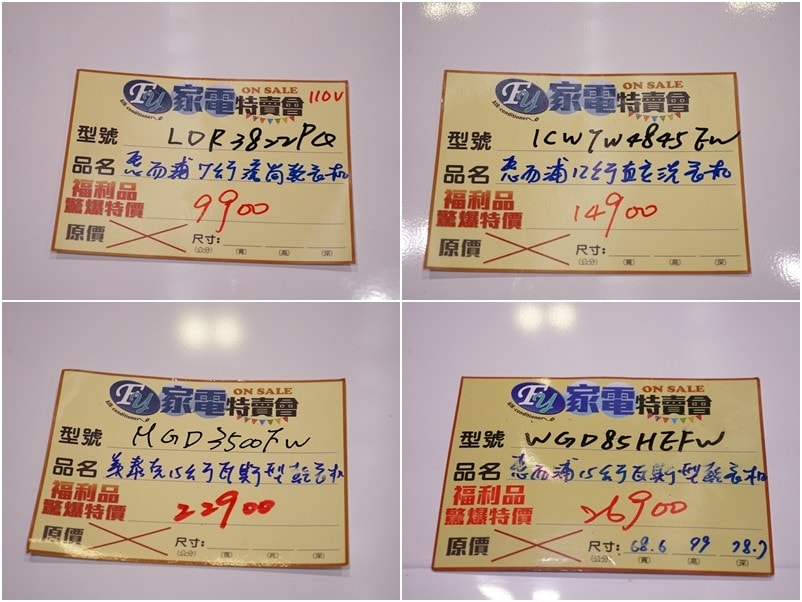 FY 家電特賣會 ON SALE
air conditioner
110V
型號 LDR3822PQ
品名 惠而浦7公斤產尚乾衣机
福利品
驚爆特價 9900
原價 尺寸:
(公分) (寬) (高) (深)
FY 家電特賣會 ON SALE
air conditioner
型號 1CWTW4845EW
品名 惠而浦12公斤直立洗衣机
福利品
驚爆特價 14900
原價 尺寸:
(公分) (寬) (高) (深)
FY 家電特賣會 ON SALE
air conditioner
型號 MGD3500FW
品名 美泰克15公斤瓦斯型乾衣机
福利品
驚爆特價 22900
原價 尺寸:
(公分) (寬) (高) (深)
FY 家電特賣會 ON SALE
air conditioner
型號 WGD85HEFW
品名 惠而浦15公斤瓦斯型乾衣机
福利品
驚爆特價 26900
原價 尺寸: 68.6 99 78.7
(公分) (寬) (高) (深)